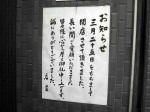 お知らせ
三月二十五日をもちまして
閉店させて頂きました。
長い間ご愛顧いただき
皆々様に心から厚く御礼申し上げます。
誠にありがとうございました。
店主